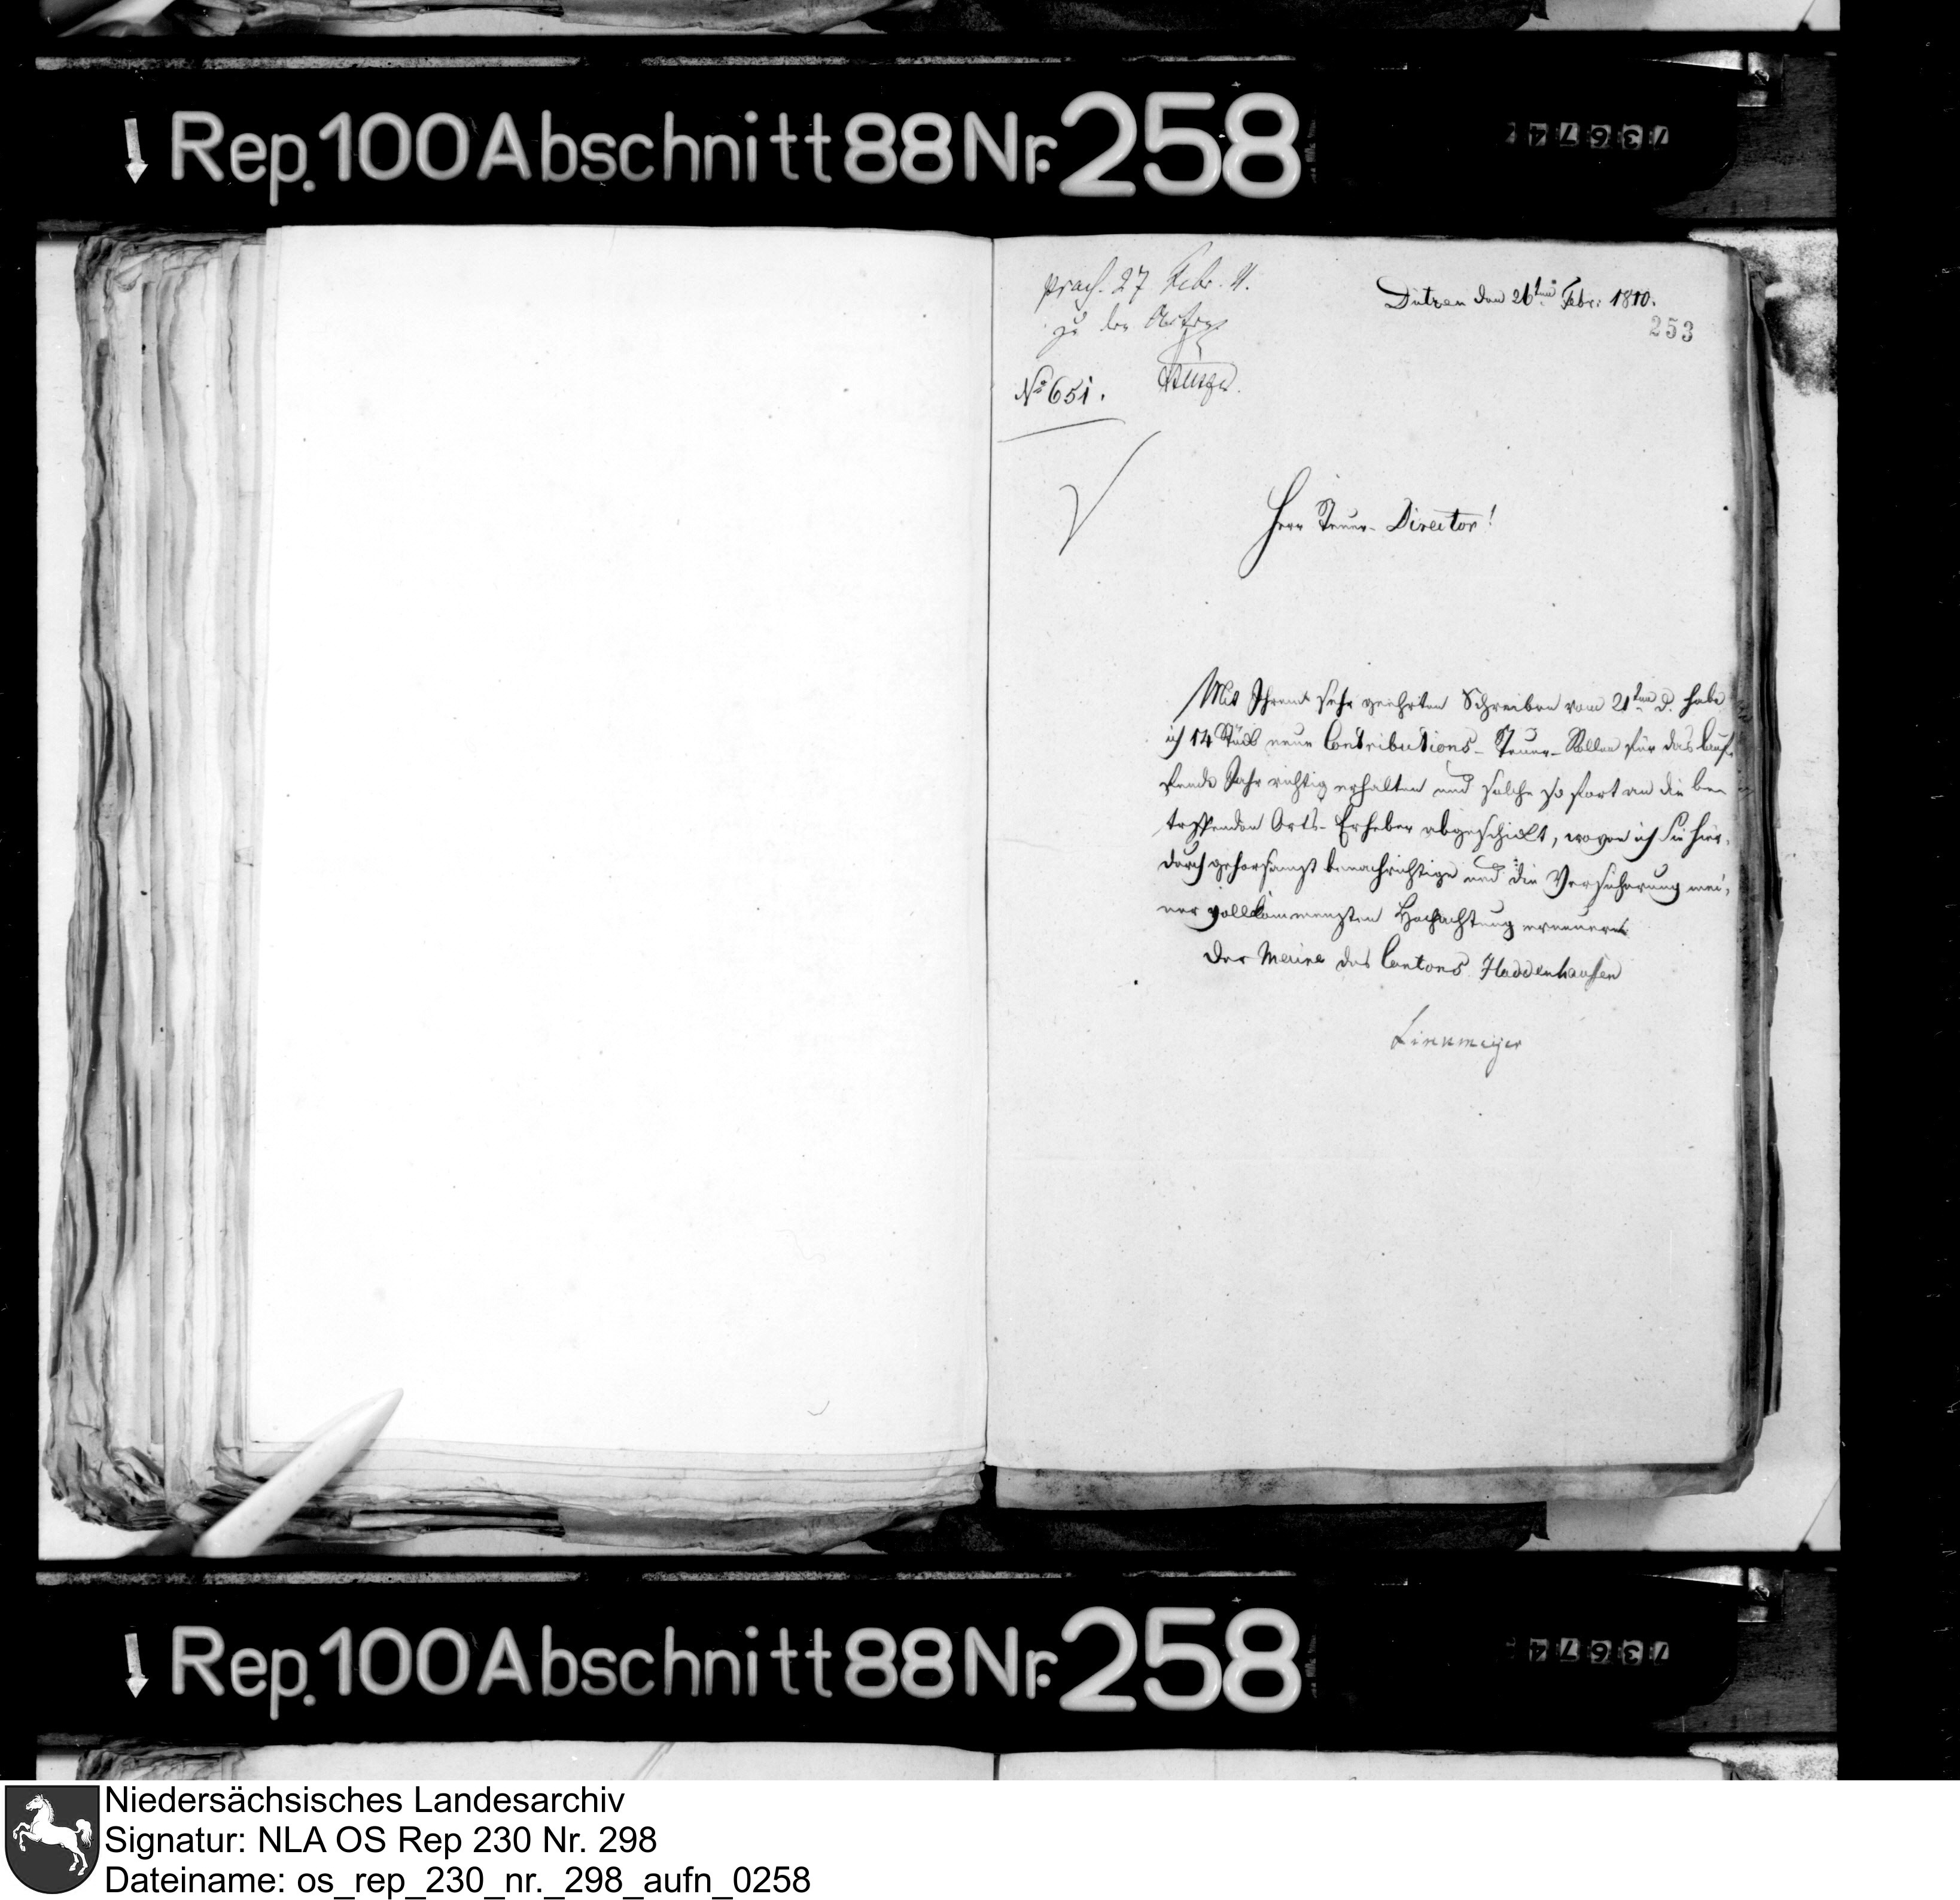 Rep. 100 Abschnitt 88 Nr. 258
73674
praes. 27 Febr. 11.
zu den Acten
No 651.
Dützen den 26ten Febr: 1810.
253
Herr Steuer-Director!
Mit Ihrem sehr geehrten Schreiben vom 21ten d. habe
ich 14 Stück neue Contributions-Steuer-Rollen für das lauf-
fende Jahr richtig erhalten und solche so fort an die be-
treffenden Orts-Erheber abgeschickt, wovon ich Sie hier-
durch gehorsamst benachrichtige und die Versicherung mei-
ner vollkommensten Hochachtung erneuere
Der Maire des Cantons Haddenhausen
Linkmeyer
Rep. 100 Abschnitt 88 Nr. 258
73674
Niedersächsisches Landesarchiv
Signatur: NLA OS Rep 230 Nr. 298
Dateiname: os_rep_230_nr._298_aufn_0258